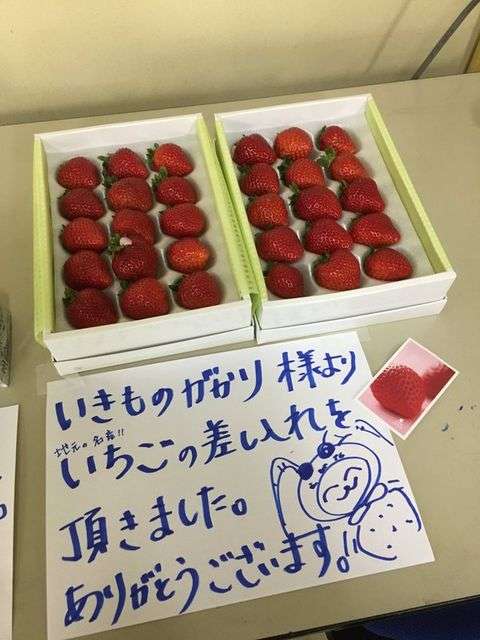 いきものがかり 様より
地元の名産!!
いちごの差し入れを
頂きました。
ありがとうございます!!